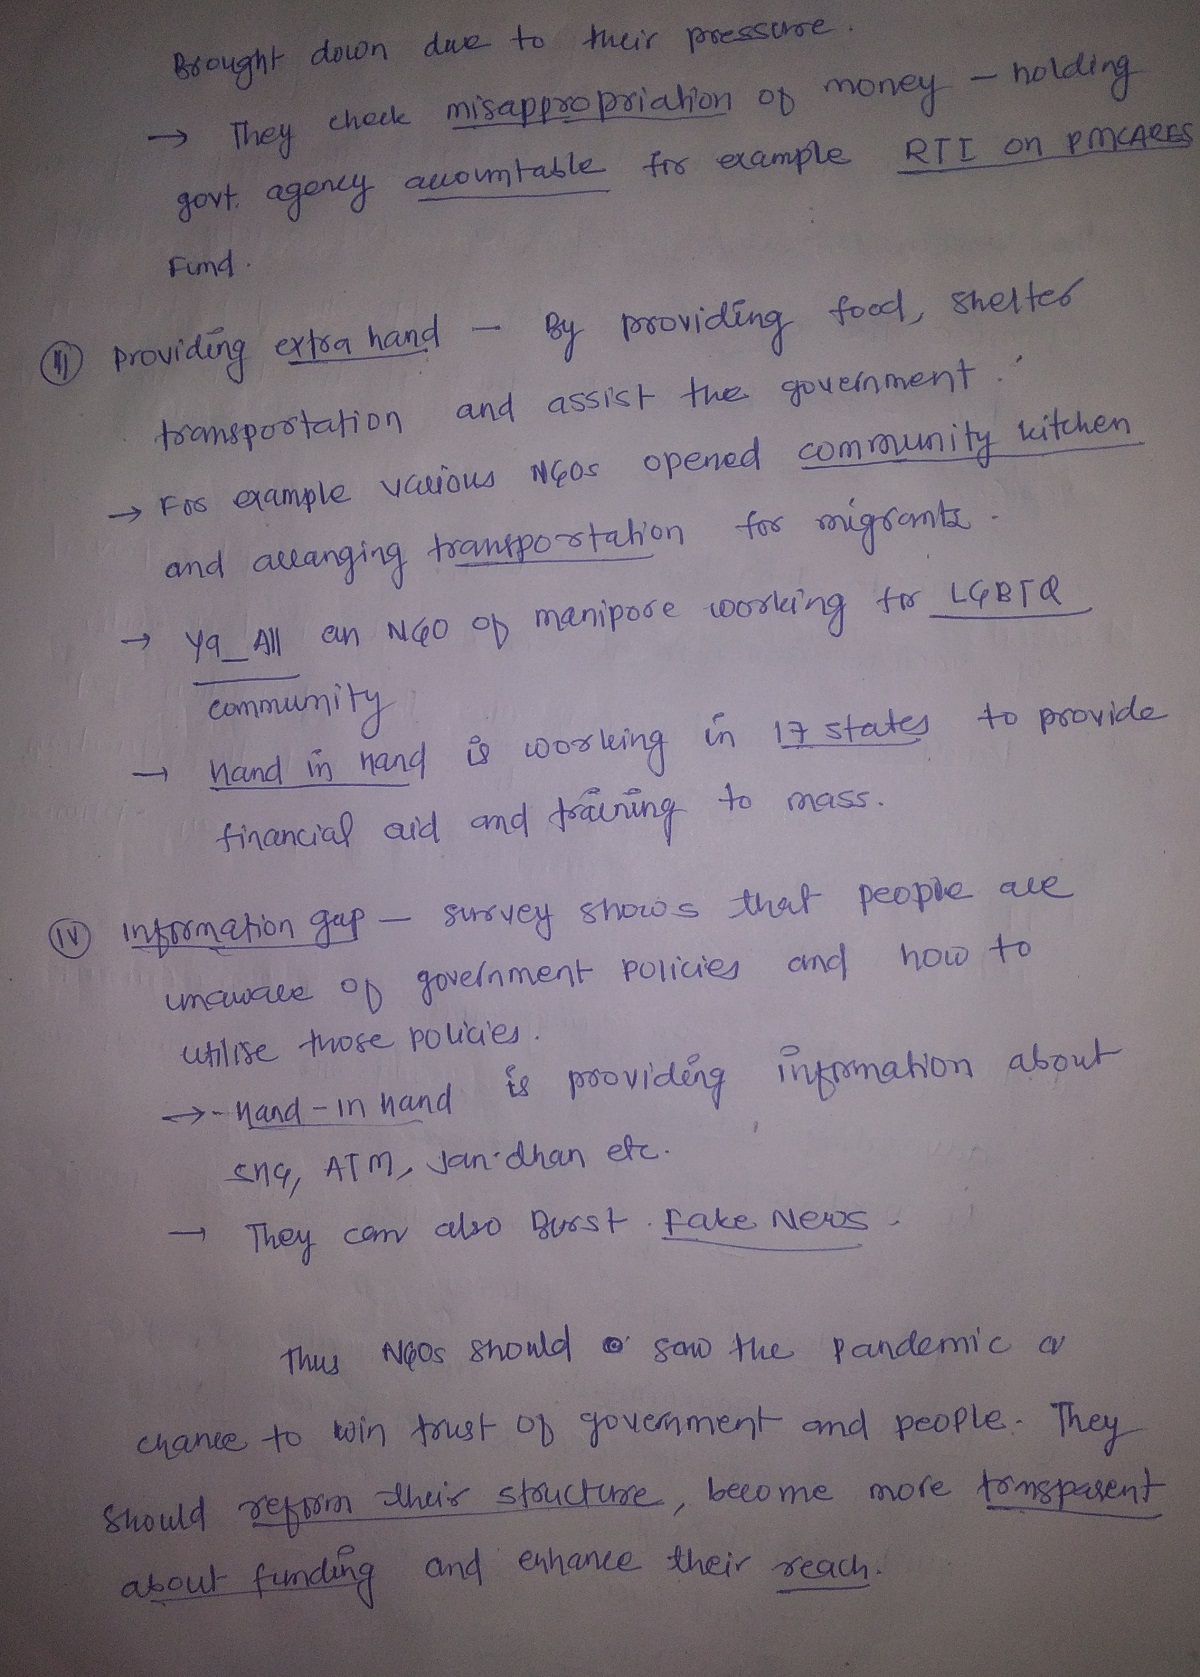 Brought down due to their pressure.
→ They check misappropriation of money – holding
govt. agency accountable for example RTI on PMCARES
Fund.
(iii) Providing extra hand – By providing food, shelter
transportation and assist the government.
→ For example various NGOs opened community kitchen
and arranging transportation for migrants.
→ Ya_All an NGO of manipore working for LGBTQ
community
→ Hand in Hand is working in 17 states to provide
financial aid and training to mass.
(iv) Information gap – survey shows that people are
unaware of government policies and how to
utilise those policies.
→ - Hand-in hand is providing information about
SHG, ATM, Jan-dhan etc.
→ They can also Burst Fake News.
Thus NGOs should saw the pandemic a
chance to win trust of government and people. They
should reform their structure, become more trnsparent
about funding and enhance their reach.